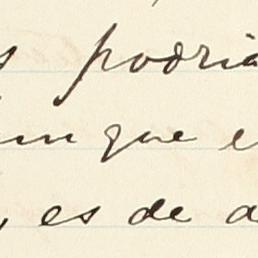 podria
unque e
es de a